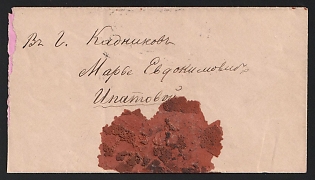 Въ г. Кадниковъ
Марье Евдокимовне
Ипатовой